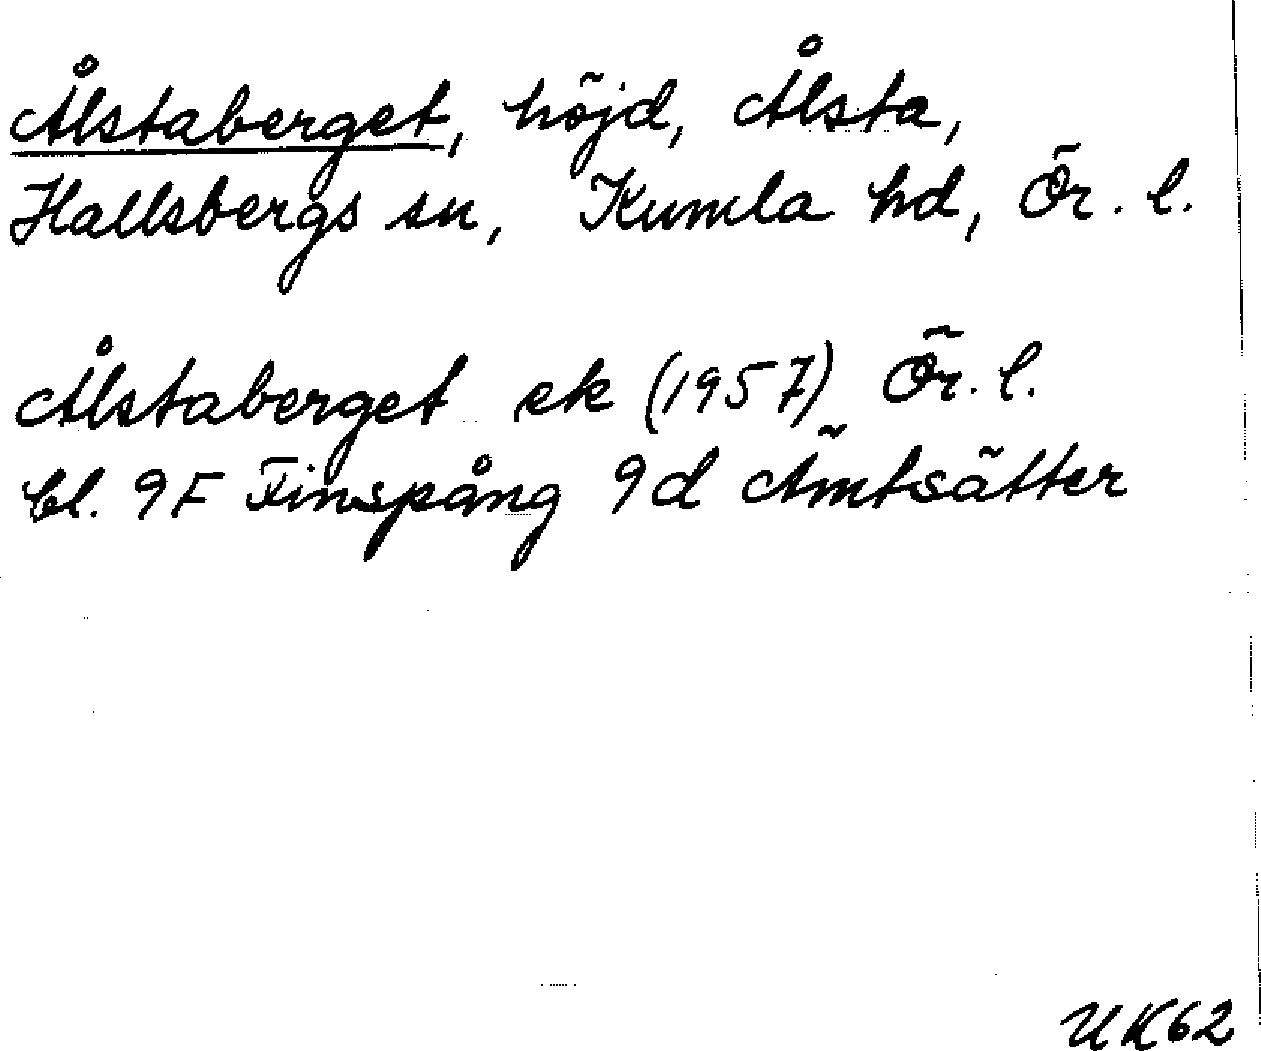 Ålstaberget, höjd, Ålsta,
Hallsbergs sn, Kumla hd, Ör. l.
Ålstaberget ek (1957) Ör. l.
bl. 9F Finspång 9d Ämtsätter
UK62